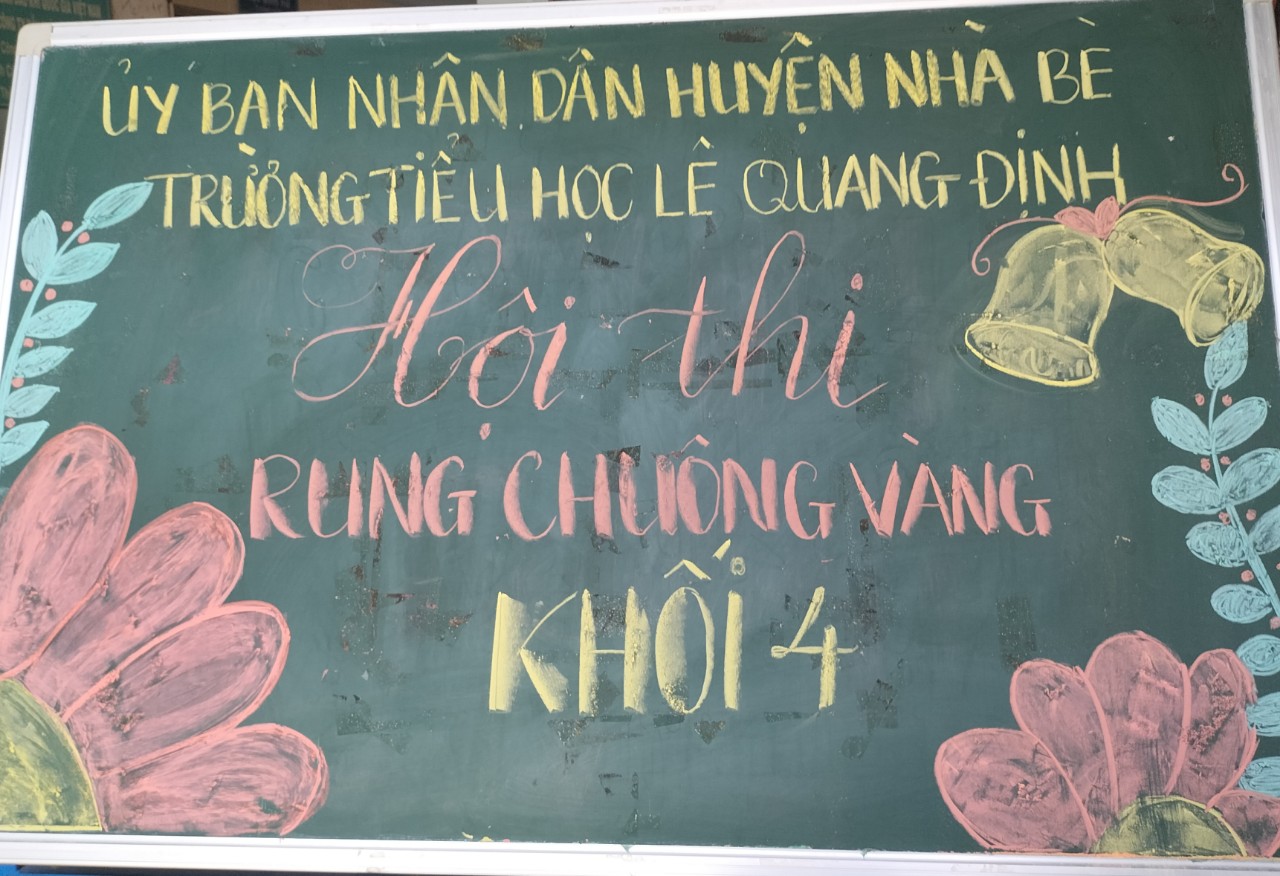 ỦY BAN NHÂN DÂN HUYỆN NHÀ BÈ
TRƯỜNG TIỂU HỌC LÊ QUANG ĐỊNH
Hội thi
RUNG CHUÔNG VÀNG
KHỐI 4